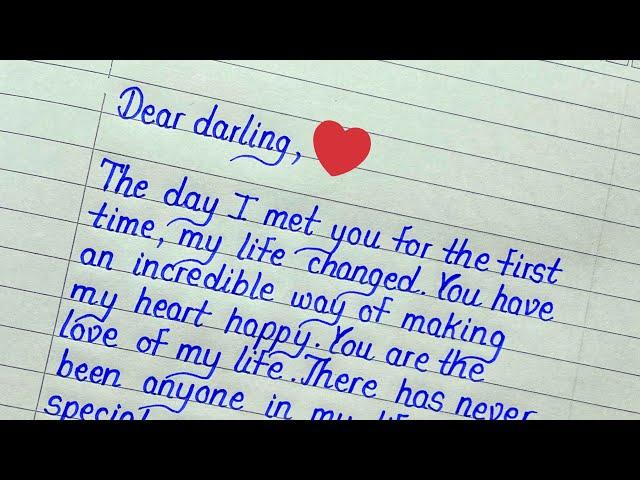 Dear darling,
The day I met you for the first
time, my life changed. You have
an incredible way of making
my heart happy. You are the
love of my life. There has never
been anyone in my
special